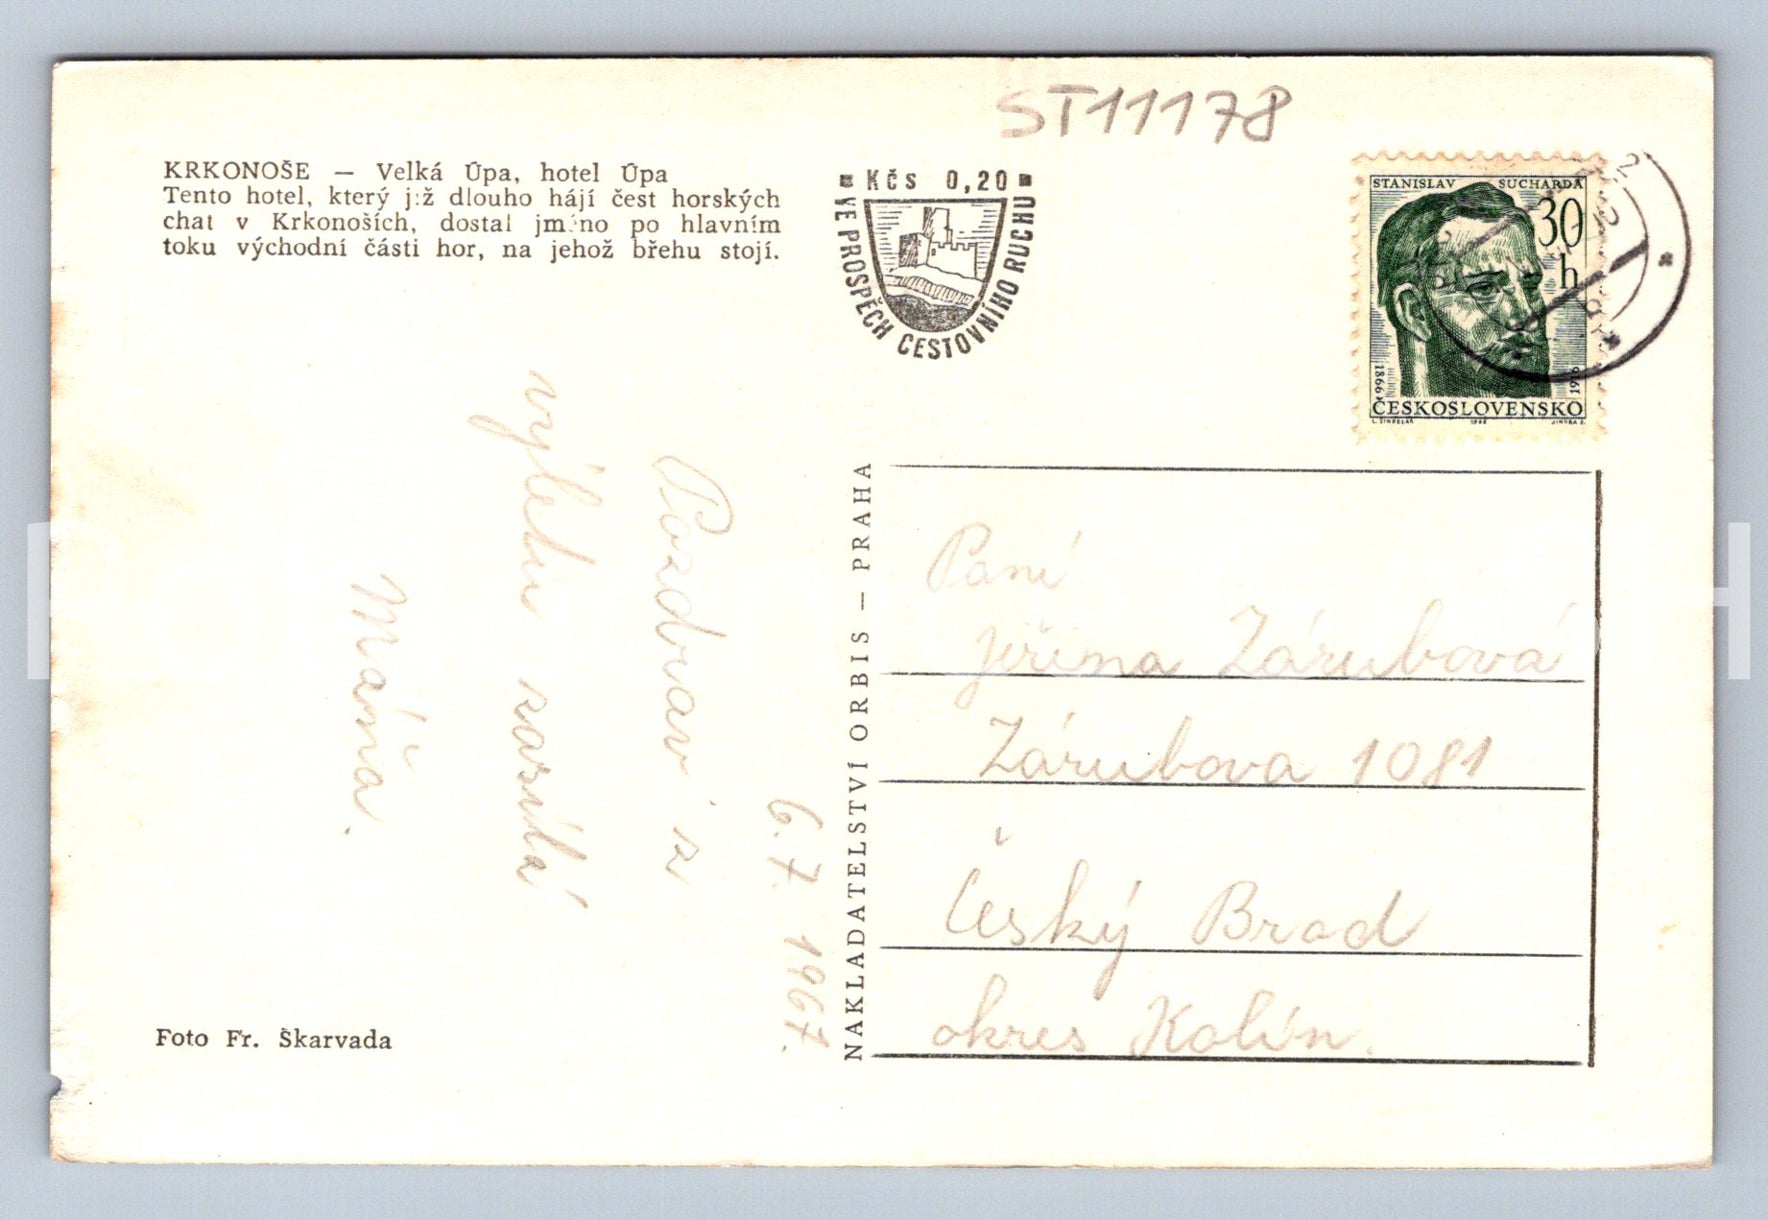 ST11178
KRKONOŠE — Velká Úpa, hotel Úpa
Tento hotel, který již dlouho hájí čest horských
chat v Krkonoších, dostal jméno po hlavním
toku východní části hor, na jehož břehu stojí.
Kčs 0,20
VE PROSPĚCH CESTOVNÍHO RUCHU
STANISLAV SUCHARDA
30
h
1866 1916
ČESKOSLOVENSKO
6.7. 1967.
Pozdrav z
výletu zasílá
Máňa.
NAKLADATELSTVÍ ORBIS — PRAHA
Paní
Jiřina Zárubová
Zárubova 1081
Český Brod
okres Kolín.
Foto Fr. Škarvada